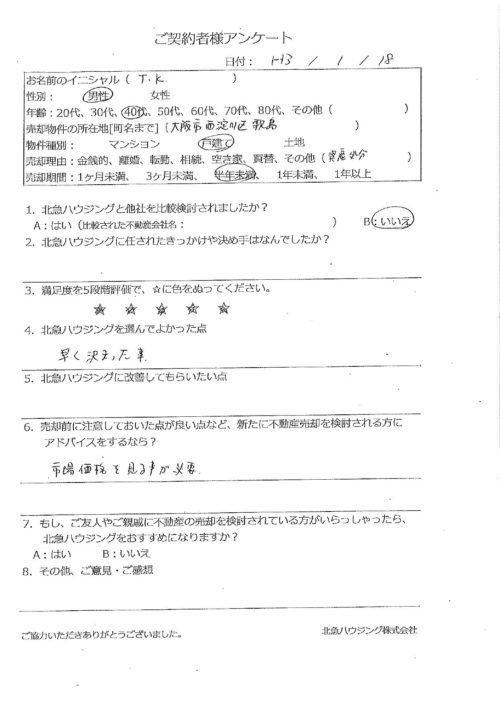 ご契約者様アンケート
日付: H3 / 1 / 18
お名前のイニシャル ( T.K. )
性別: 男性 女性
年齢:20代、30代、40代、50代、60代、70代、80代、その他 ( )
売却物件の所在地[町名まで] [大阪市西淀川区歌島 )
物件種別: マンション 戸建て 土地
売却理由:金銭的、離婚、転勤、相続、空き家、買替、その他 (資産処分 )
売却期間:1ヶ月未満、 3ヶ月未満、 半年未満、 1年未満、 1年以上
1. 北急ハウジングと他社を比較検討されましたか?
A:はい (比較された不動産会社名: ) B:いいえ
2. 北急ハウジングに任されたきっかけや決め手はなんでしたか?
3. 満足度を5段階評価で、☆に色をぬってください。
☆ ☆ ☆ ☆ ☆
4. 北急ハウジングを選んでよかった点
早く決まった事
5. 北急ハウジングに改善してもらいたい点
6. 売却前に注意しておいた点が良い点など、新たに不動産売却を検討される方に
アドバイスをするなら?
市場価格を見る事が必要
7. もし、ご友人やご親戚に不動産の売却を検討されている方がいらっしゃったら、
北急ハウジングをおすすめになりますか?
A:はい B:いいえ
8. その他、ご意見・ご感想
ご協力いただきありがとうございました。
北急ハウジング株式会社